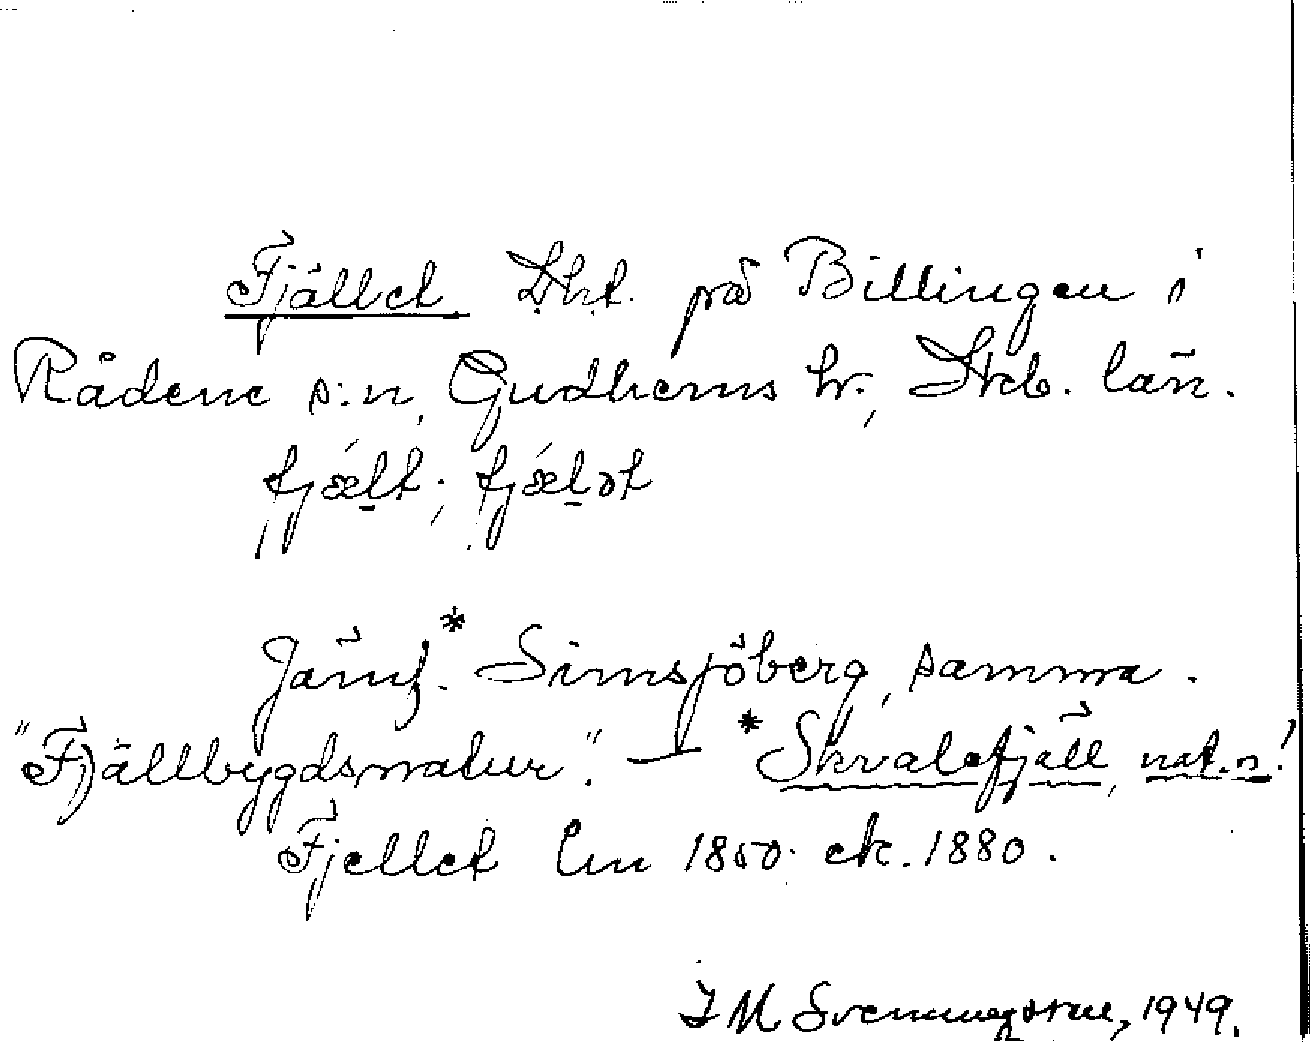 Fjället. på Billingen i
Rådene s:n, Gudhems hr., Skb. län.
fjælt; fjælət
Jämf. *Simsjöberg, samma.
"Fjällbygdsnatur". — *Skvalefjäll, nat.n!
Fjellet Lm 1850. ek. 1880.
I M Svenningsson, 1949.